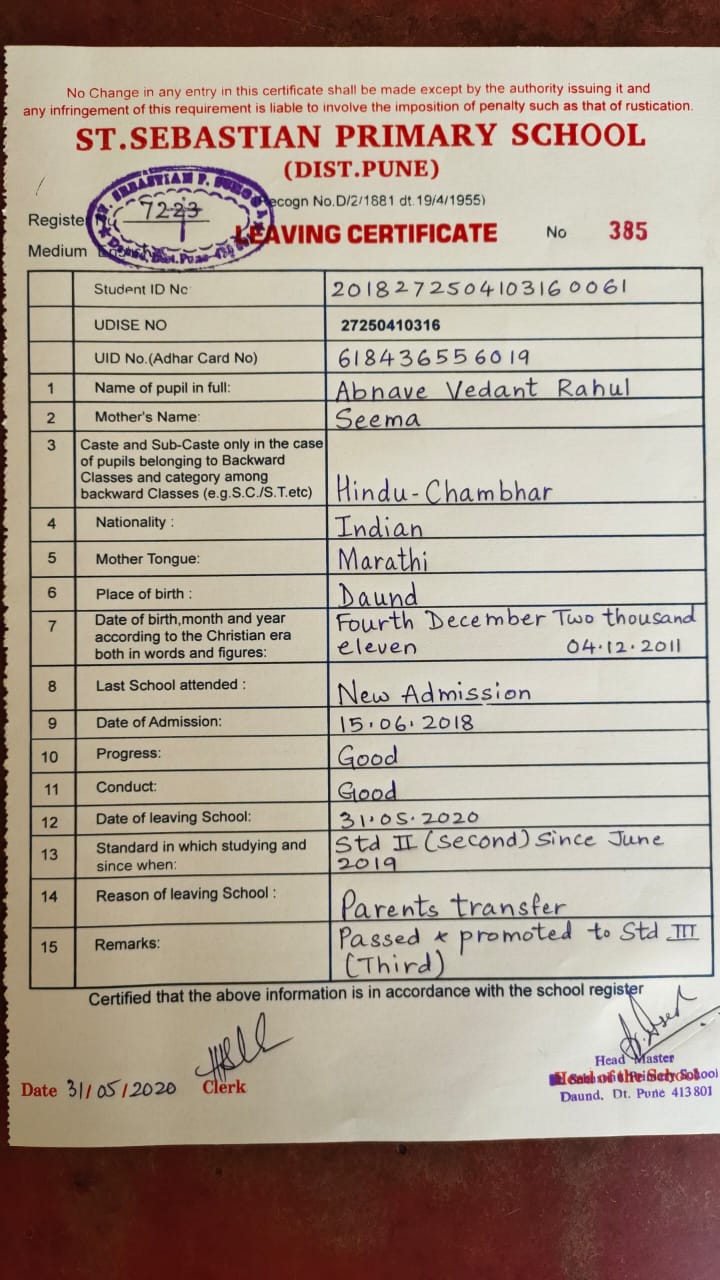 No Change in any entry in this certificate shall be made except by the authority issuing it and
any infringement of this requirement is liable to involve the imposition of penalty such as that of rustication.
ST.SEBASTIAN PRIMARY SCHOOL
(DIST.PUNE)
ecogn No.D/2/1881 dt.19/4/1955)
Registe 7223
LEAVING CERTIFICATE No 385
Medium
Student ID No 2018272504103160061
UDISE NO 27250410316
UID No.(Adhar Card No) 618436556019
1 Name of pupil in full: Abnave Vedant Rahul
2 Mother's Name: Seema
3 Caste and Sub-Caste only in the case
of pupils belonging to Backward
Classes and category among
backward Classes (e.g.S.C./S.T.etc) Hindu-Chambhar
4 Nationality : Indian
5 Mother Tongue: Marathi
6 Place of birth : Daund
7 Date of birth,month and year Fourth December Two thousand
according to the Christian era eleven 04.12.2011
both in words and figures:
8 Last School attended : New Admission
9 Date of Admission: 15.06.2018
10 Progress: Good
11 Conduct: Good
12 Date of leaving School: 31.05.2020
13 Standard in which studying and Std II (Second) Since June
since when: 2019
14 Reason of leaving School : Parents transfer
15 Remarks: Passed & promoted to Std III
(Third)
Certified that the above information is in accordance with the school register
Head Master
Date 31/05/2020 Clerk Head of the School
Daund, Dt. Pune 413801